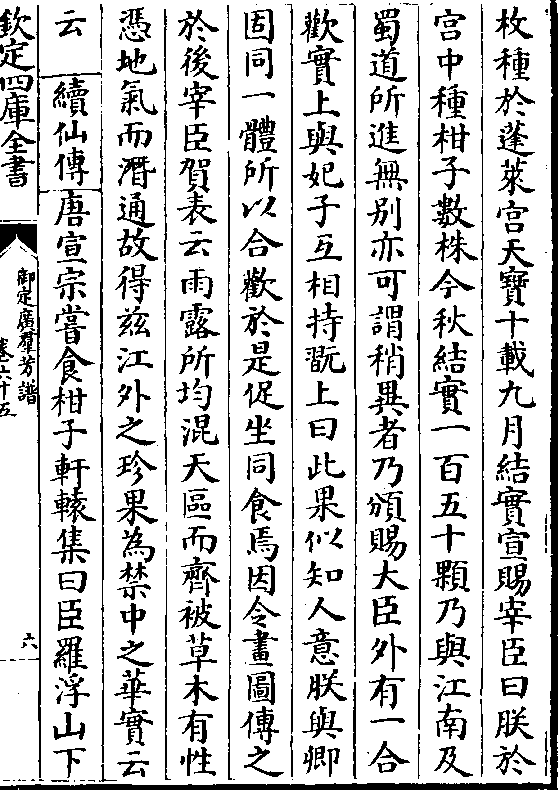 枚種於蓬萊宫天寳十載九月結實宣賜宰臣曰朕於
宫中種柑子數株今秋結實一百五十顆乃與江南及
蜀道所進無别亦可謂稍異者乃頒賜大臣外有一合
歡實上與妃子互相持翫上曰此果似知人意朕與卿
固同一體所以合歡於是促坐同食焉因令畫圖傳之
於後宰臣賀表云雨露所均混天區而齊被草木有性
憑地氣而潛通故得兹江外之珍果為禁中之華實云
云　續仙傳唐宣宗嘗食柑子軒轅集曰臣羅浮山下
欽定四庫全書
御定廣羣芳譜
卷六十五
六